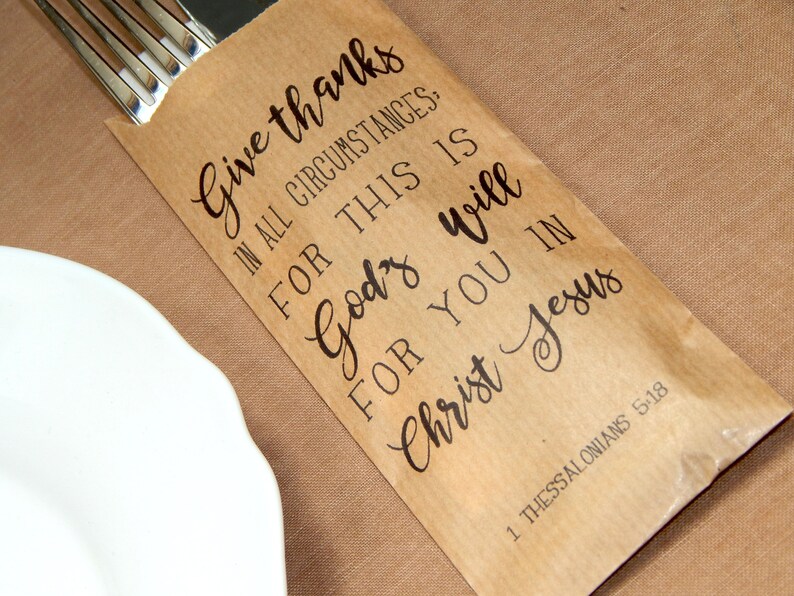 Give thanks
IN ALL CIRCUMSTANCES;
FOR THIS IS
God's will
FOR YOU IN
Christ Jesus
1 THESSALONIANS 5:18